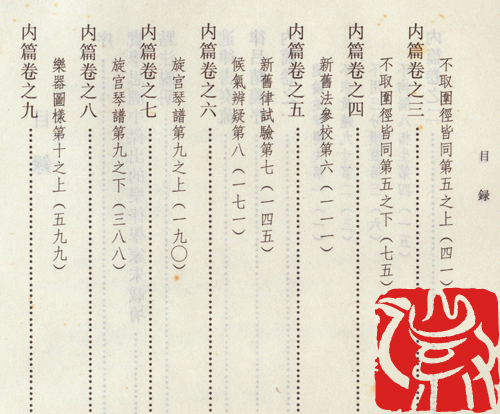 目録
不取圍徑皆同第五之上(四一)
内篇卷之三
不取圍徑皆同第五之下(七五)
内篇卷之四
新舊法參校第六(一一一)
内篇卷之五
新舊律試驗第七(一四五)
候氣辨疑第八(一七一)
内篇卷之六
旋宮琴譜第九之上(一九〇)
内篇卷之七
旋宮琴譜第九之下(三八八)
内篇卷之八
樂器圖樣第十之上(五九九)
内篇卷之九